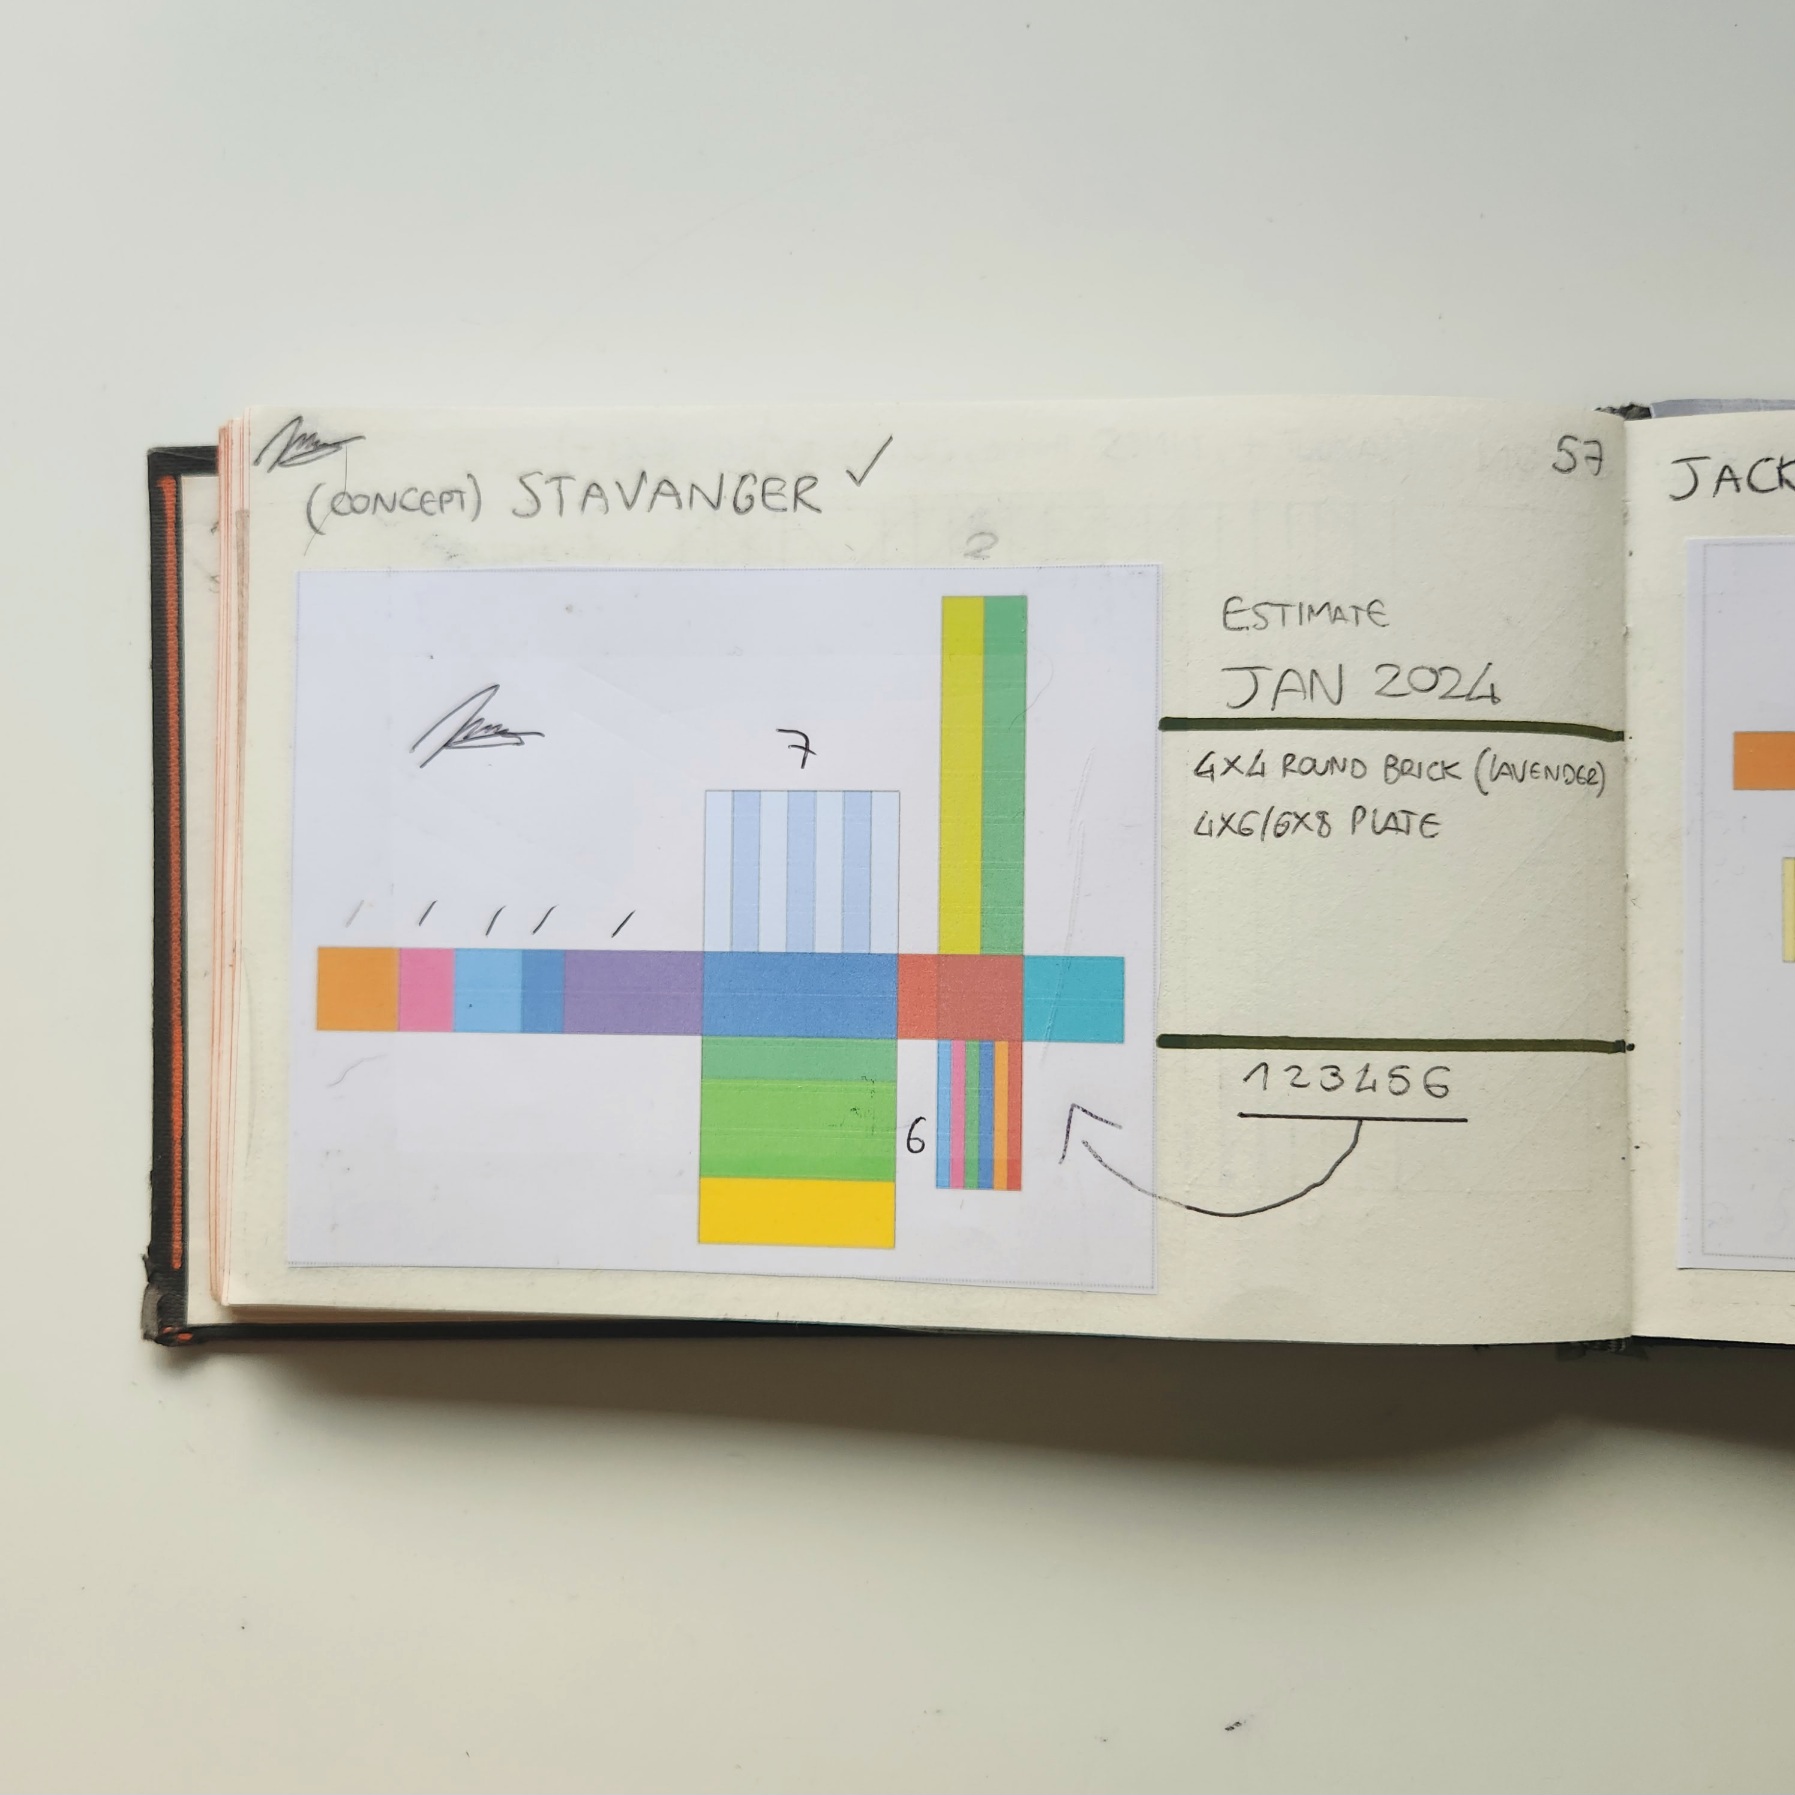 (CONCEPT) STAVANGER ✓
57
2
7
6
ESTIMATE
JAN 2024
4X4 ROUND BRICK (LAVENDER)
4X6/6X8 PLATE
123456
JACK